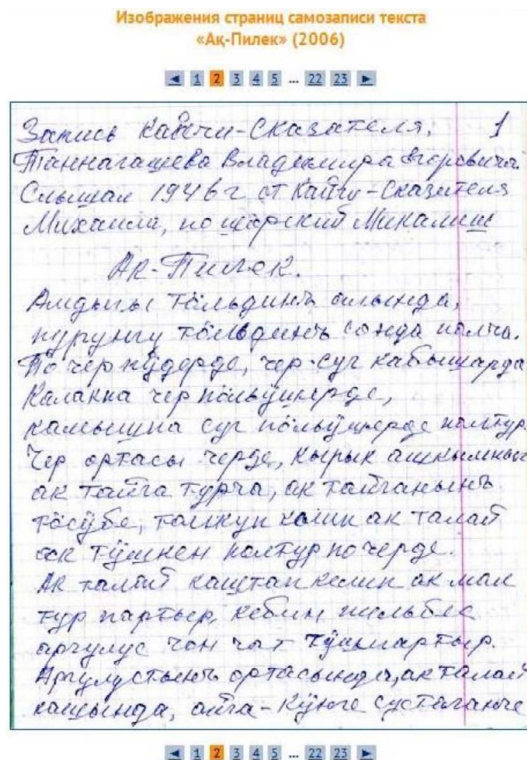 Изображения страниц самозаписи текста
«Ақ-Пилек» (2006)
◄ 1 2 3 4 5 ... 22 23 ►
Запись Кайчи-Сказателя, 1
Таннагашева Владимира Егоровича
Слышал 1946 г от Кайчи-Сказителя
Михаила, по шорский Микалиш
Ак-Пилек.
Амдығы тӧльдинъ алында,
пурунгу тӧльдинъ сонда полча.
По чер пӱдерде, чер-суг кабышарда
Калакпа чер пӧльӱшчерде,
камышпа суг пӧльӱшчерде полтур.
Чер ортасы черде, кырык ашкымныг
ак тайга турча, ак тайганынъ
тӧзӱбе, толкун келип ак талай
ак тӱшкен полтур по черде.
Ак талай каштап келип ак мал
тур партыр, кебин пильбес
аргулус чон чат тӱшпартыр.
Аргулустынъ ортасында, ак талай
кашында, айга-кӱнге сустаганче
◄ 1 2 3 4 5 ... 22 23 ►